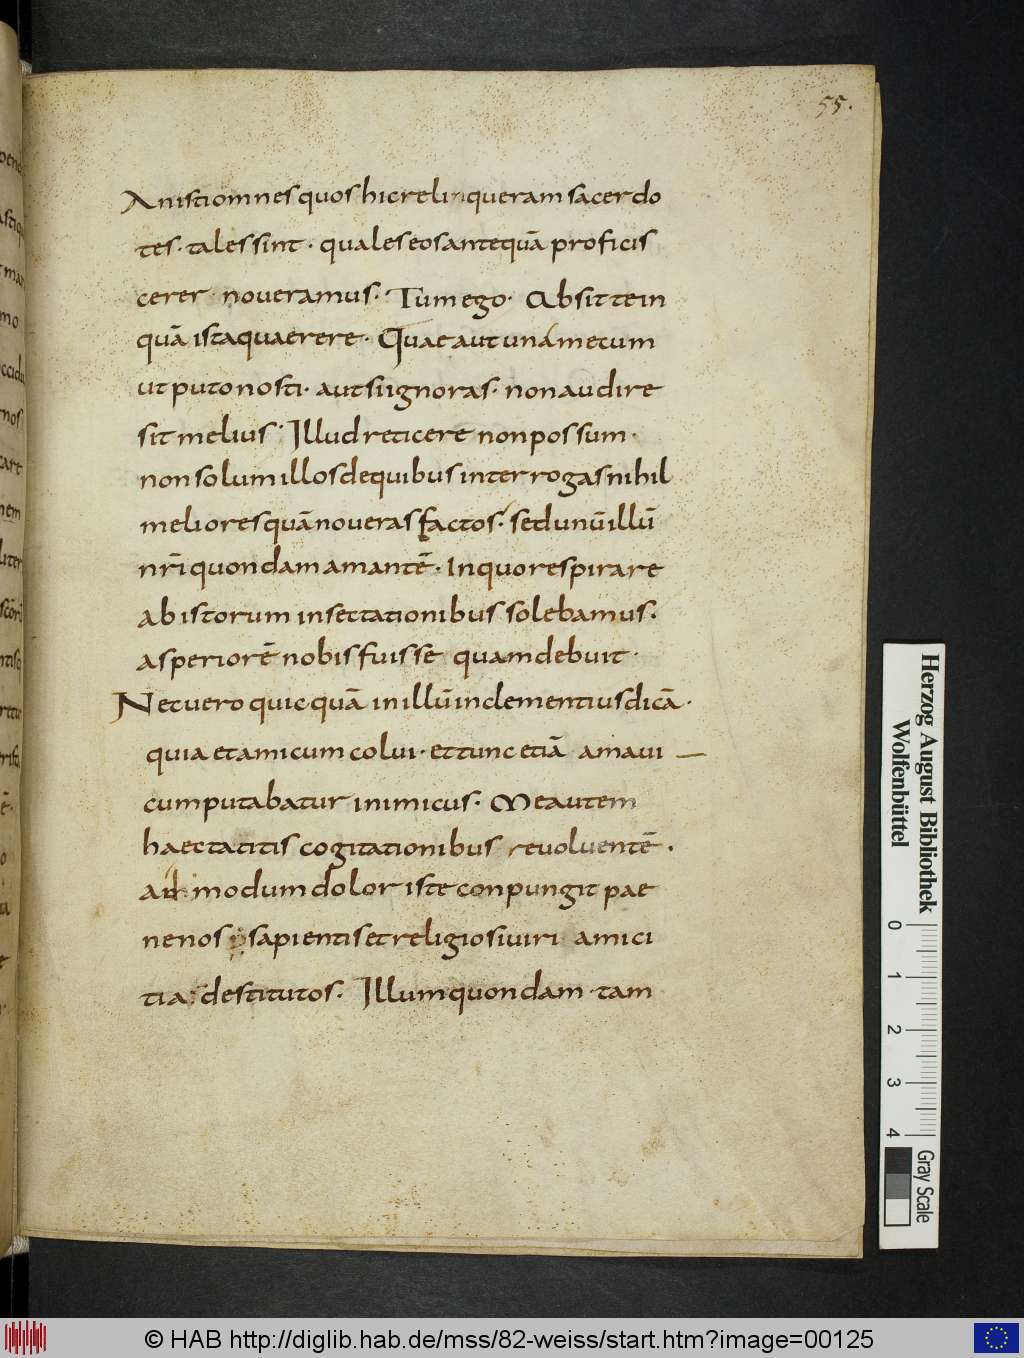 55.
An isti omnes quos hic reliqueram sacerdo
tes· tales sint· quales eos antequā proficis
cerer noveramus· Tum ego· Absit te in
quā ista quaerere· Quae aut una mecum
ut puto nosti· aut si ignoras· non audire
sit melius· Illud reticere non possum·
non solum illos de quibus interrogas nihil
meliores quā noveras factos· sed unū illū
nr̄i quondam amantē· In quo respirare
ab istorum insectationibus solebamus·
asperiorē nobis fuisse quam debuit·
Nec vero quicquā in illū inclementius dicā·
quia et amicum colui· et tunc etiā amavi
cum putabatur inimicus· Me autem
haec tacitis cogitationibus revolventē·
admodum dolor iste conpungit pae
ne nos sapientis et religiosi viri amici
tia destitutos· Illum quondam tam
© HAB http://diglib.hab.de/mss/82-weiss/start.htm?image=00125
Herzog August Bibliothek
Wolfenbüttel
0 1 2 3 4
Gray Scale